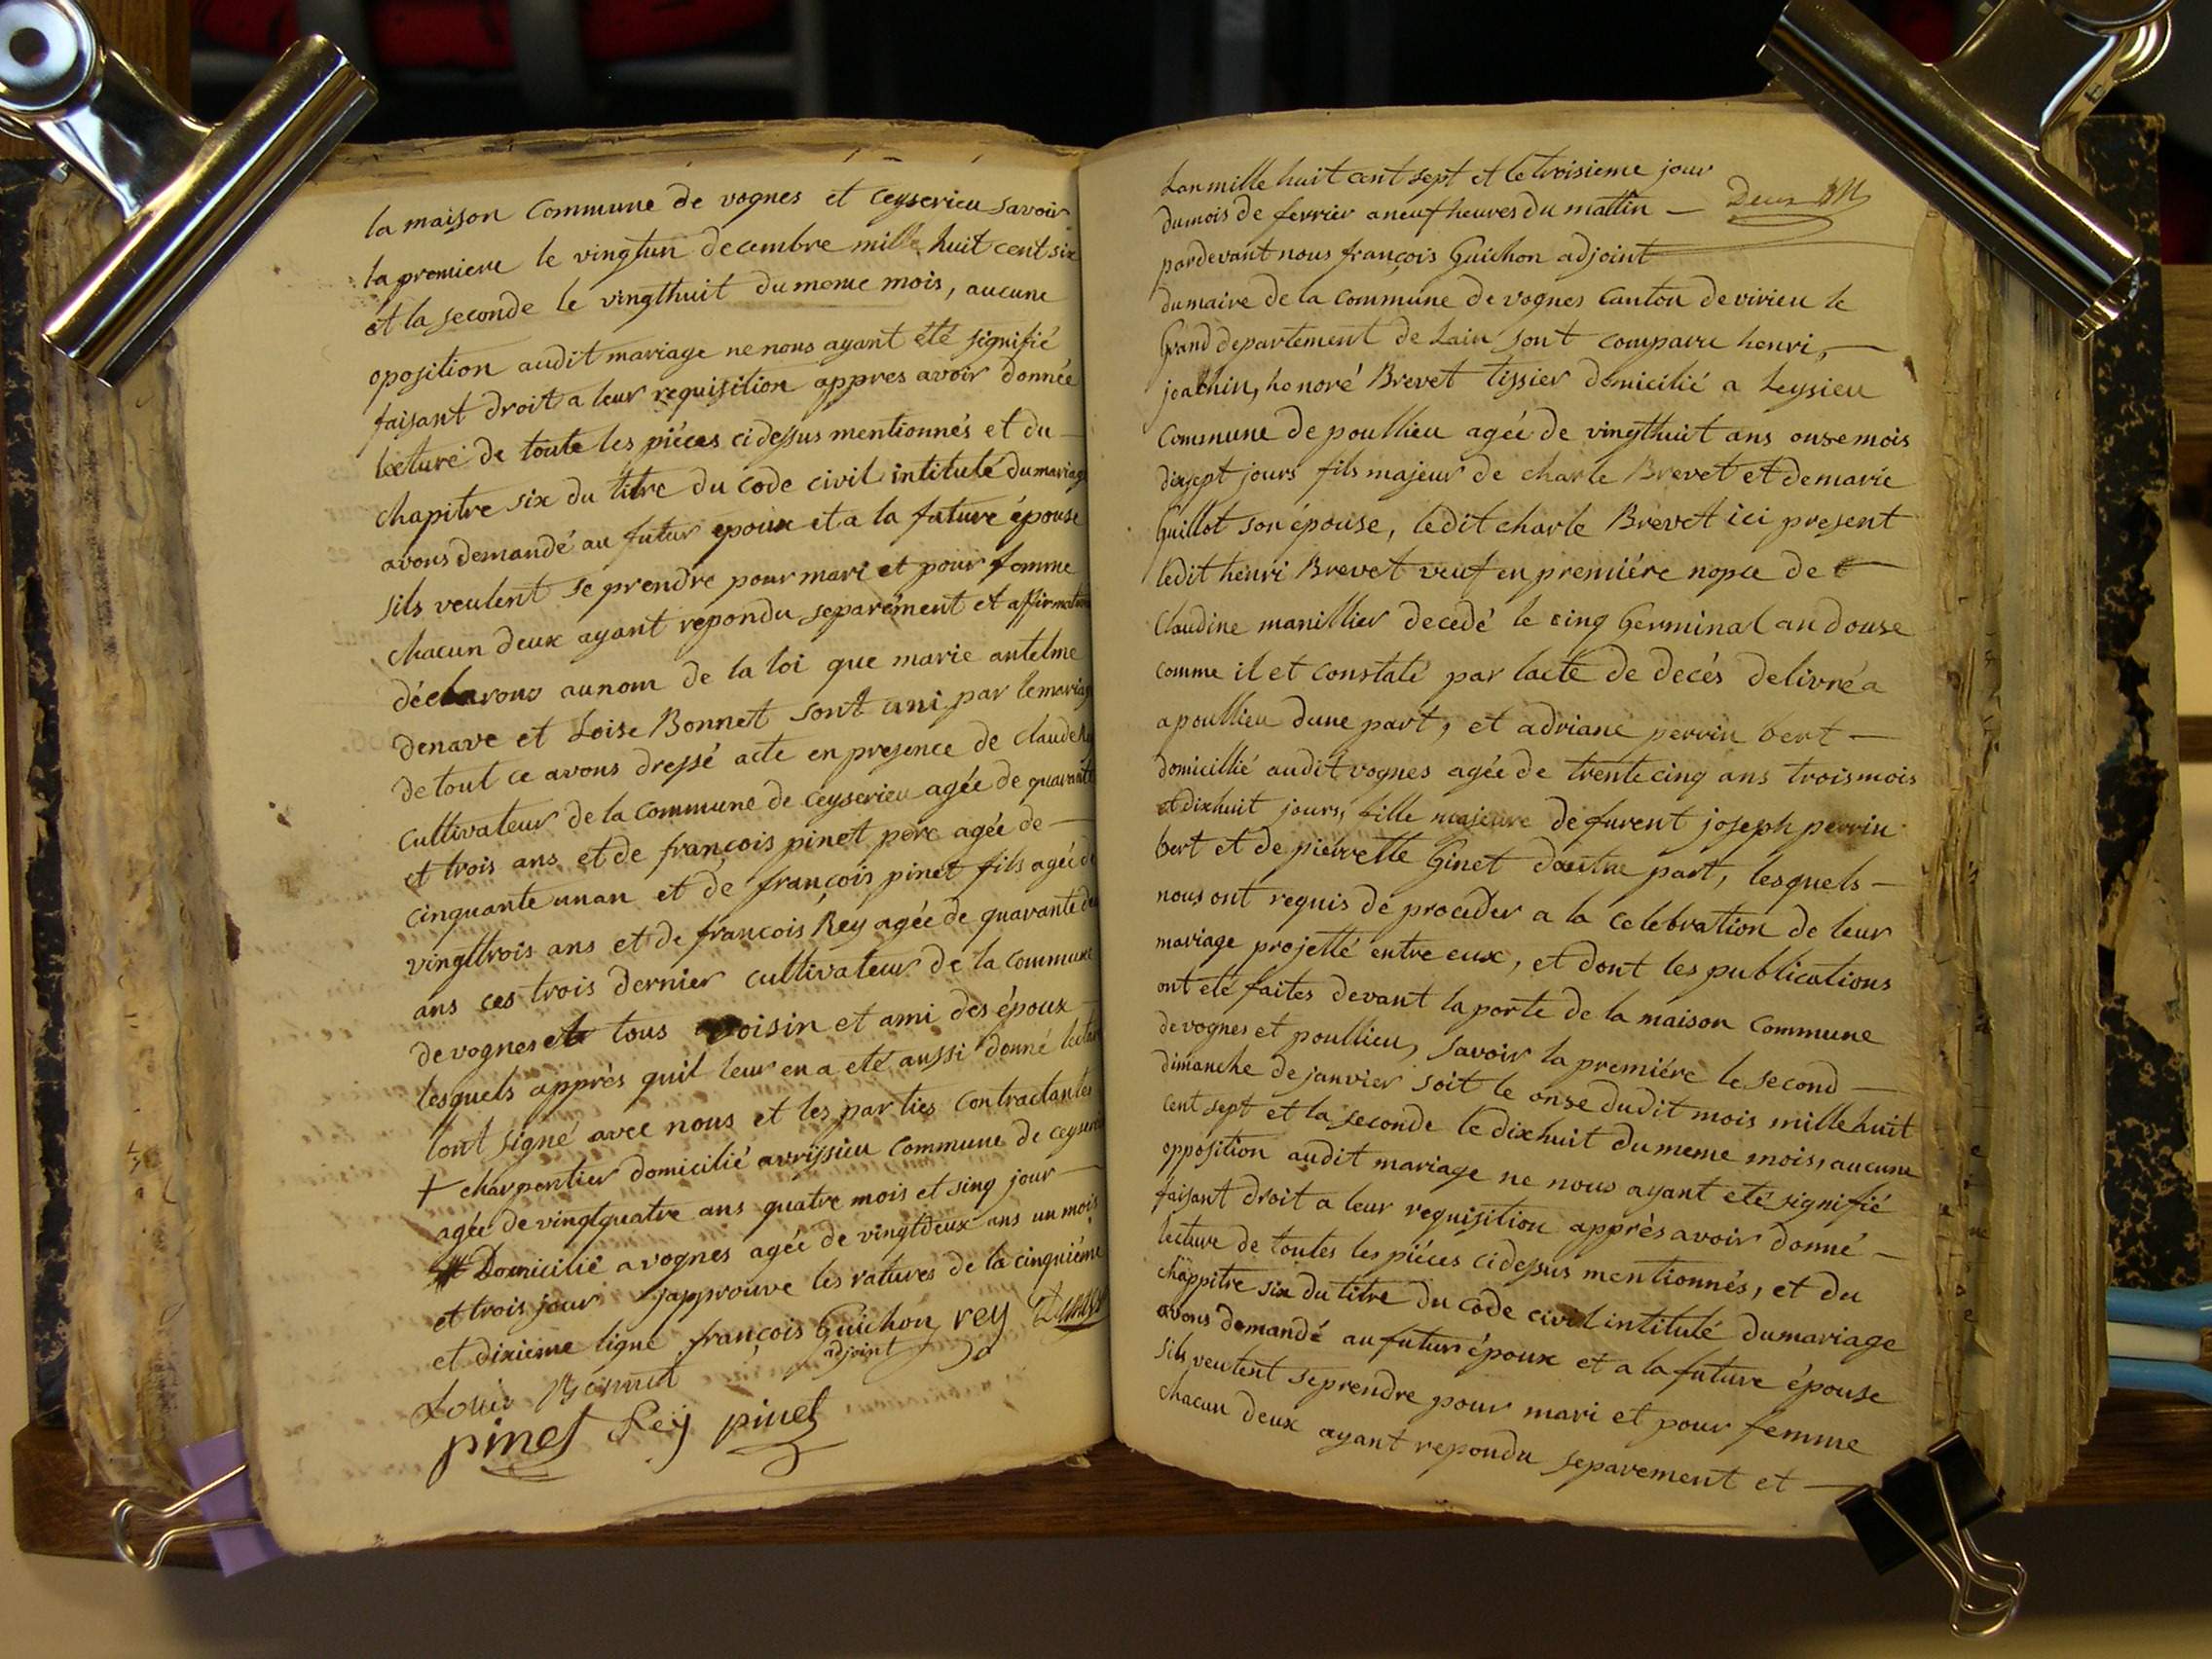 la maison Commune de vognes et Ceyserieu savoir
la premiere le vingtun decembre mille huit cent six
et la seconde le vingthuit du meme mois, aucune
oposition audit mariage ne nous ayant été signifié
faisant droit a leur requisition appres avoir donnée
lecture de toute les piéces ci dessus mentionnés et du
chapitre six du titre du code civil intitulé du mariage
avons demandé au futur epoux et a la future épouse
sils veulent se prendre pour mari et pour femme
chacun deux ayant repondu separément et
déclarons au nom de la loi que marie antelme
Denave et Loise Bonnet sont uni par le mariage
de tout ce avons dressé acte en presence de Claude
Cultivateur de la Commune de Ceyserieu agée de quarante
et trois ans et de françois pinet pere agée de
cinquante unan et de françois pinet fils agée de
vingttrois ans et de francois Rey agée de quarante
ans ces trois dernier cultivateur de la Commune
de vognes tous voisin et ami des époux
lesquels apprès quil leur en a eté aussi donné
lont signé avec nous et les parties Contractantes
+ charpentier domicilié avrissieu Commune de
agée de vingtquatre ans quatre mois et sing jour
Domicilié a vognes agée de vingtdeux ans un mois
et trois jour japprouve les ratures de la cinquiéme
et dixieme ligne françois Guichon rey
adjoint
Bonnet
pinet Rey pinet
Lan mille huit cent sept et le troisieme jour
du mois de ferrier a neuf heures du mattin —
pardevant nous françois Guichon adjoint
du maire de la Commune de vognes Canton de virieu le
Grand departement de Lain sont comparu henri, —
joachin, honoré Brevet tissier domicilié a Leysieu
Commune de poullieu agée de vingthuit ans onse mois
dixsept jours fils majeur de charle Brevet et de marie
Guillot son épouse, ledit charle Brevet ici present
ledit henri Brevet veuf en premiére nopce de
Claudine manillier decedé le cinq Germinal an douse
comme il et constaté par lacte de decés delivré a
a poullieu dune part, et adriane perrin bert —
domicillié audit vognes agée de trente cinq ans trois mois
et dixhuit jours, fille majeure defurent joseph perrin
bert et de pierrette Ginet dautre part, lesquels —
nous ont requis de proceder a la celebration de leur
mariage projetté entre eux, et dont les publications
ont eté faites devant la porte de la maison Commune
de vognes et poullieu, savoir la premiére le second —
dimanche de janvier soit le onse dudit mois mille huit
cent sept et la seconde le dixhuit du meme mois, aucune
opposition audit mariage ne nous ayant eté signifié
faisant droit a leur requisition apprès avoir donné —
lecture de toutes les piéces cidessus mentionnés, et du
chappitre six du titre du code civil intitulé du mariage
avons demandé au futur époux et a la future épouse
sils veulent se prendre pour mari et pour femme
chacun deux ayant repondu separement et —